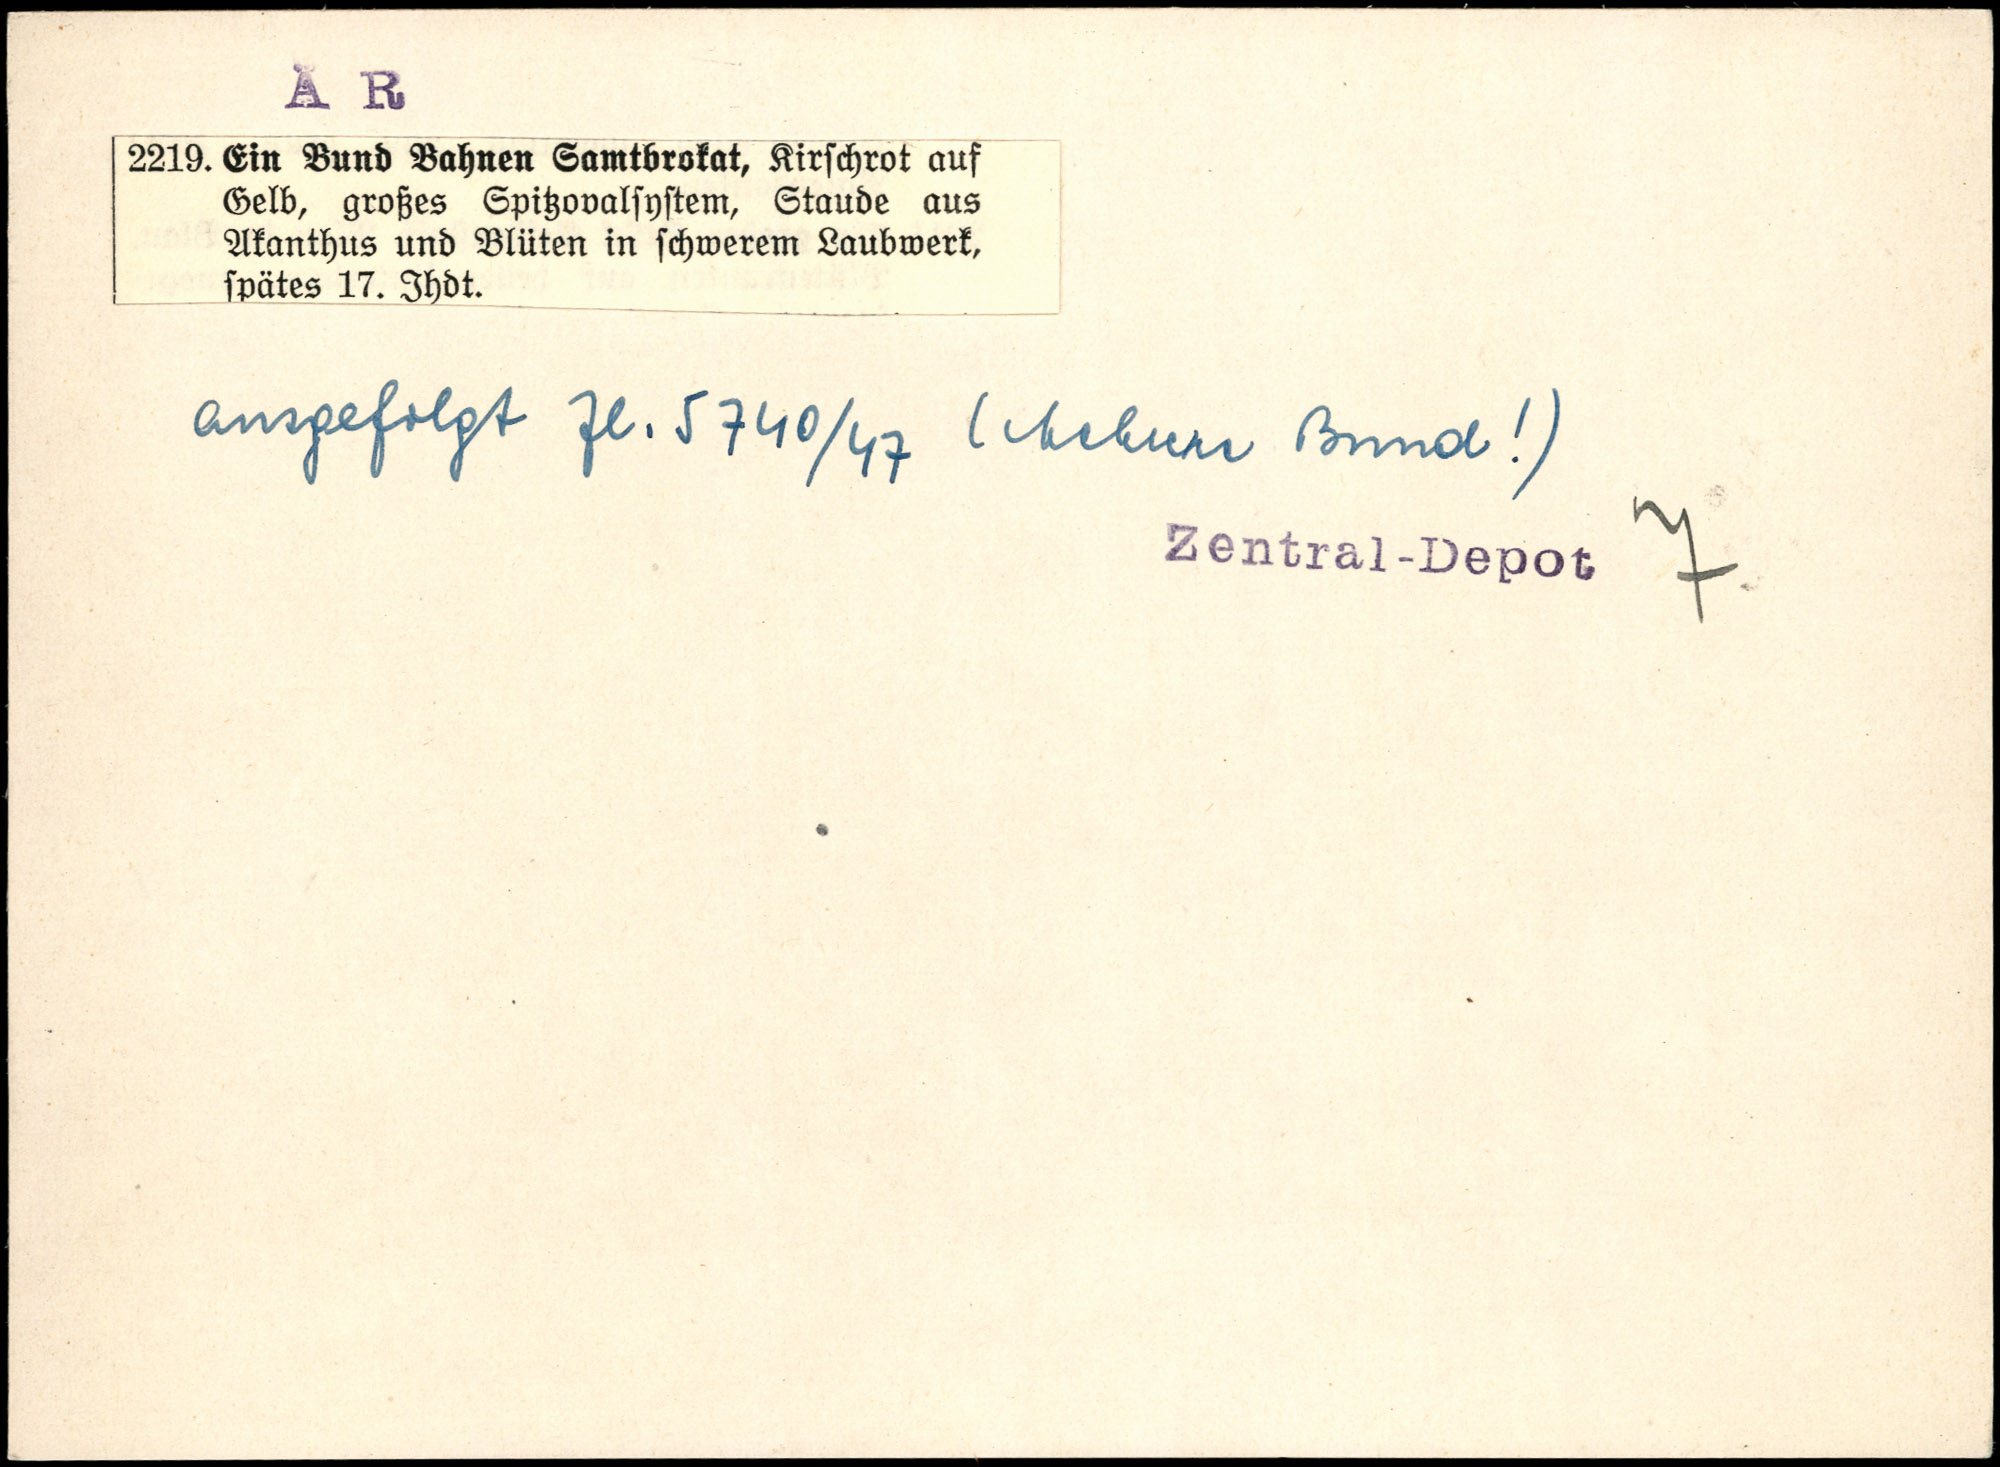 Ä R
2219. Ein Bund Bahnen Samtbrokat, Kirschrot auf
Gelb, großes Spitzovalsystem, Staude aus
Akanthus und Blüten in schwerem Laubwerk,
spätes 17. Jhdt.
ausgefolgt Zl. 5740/47 ( Bund!)
Zentral-Depot 7